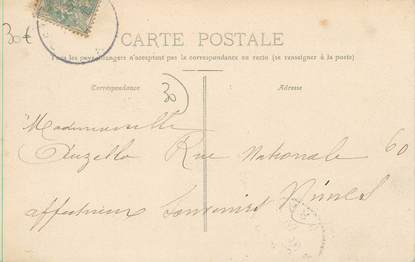 30€
CARTE POSTALE
Tous les pays étrangers n'acceptent pas la correspondance au recto (se renseigner à la poste)
Correspondance
Adresse
30
Mademoiselle
Auzello Rue Nationale 60
affectueux souvenirs Nimes